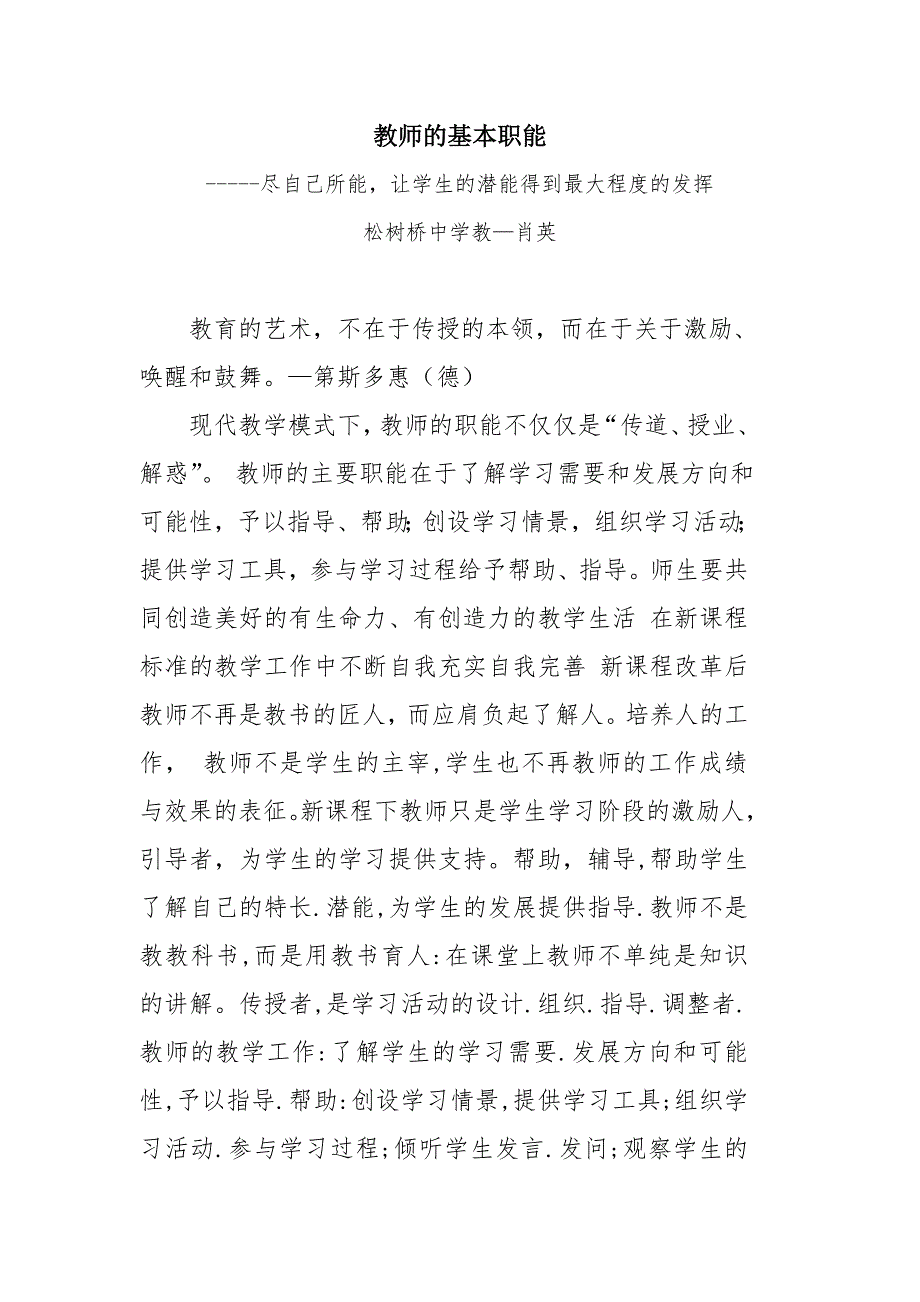 教师的基本职能
-----尽自己所能，让学生的潜能得到最大程度的发挥
松树桥中学教—肖英
教育的艺术，不在于传授的本领，而在于关于激励、
唤醒和鼓舞。—第斯多惠（德）
现代教学模式下，教师的职能不仅仅是“传道、授业、
解惑”。 教师的主要职能在于了解学习需要和发展方向和
可能性，予以指导、帮助；创设学习情景，组织学习活动；
提供学习工具，参与学习过程给予帮助、指导。师生要共
同创造美好的有生命力、有创造力的教学生活 在新课程
标准的教学工作中不断自我充实自我完善 新课程改革后
教师不再是教书的匠人，而应肩负起了解人。培养人的工
作， 教师不是学生的主宰,学生也不再教师的工作成绩
与效果的表征。新课程下教师只是学生学习阶段的激励人，
引导者，为学生的学习提供支持。帮助，辅导,帮助学生
了解自己的特长.潜能,为学生的发展提供指导.教师不是
教教科书,而是用教书育人:在课堂上教师不单纯是知识
的讲解。传授者,是学习活动的设计.组织.指导.调整者.
教师的教学工作:了解学生的学习需要.发展方向和可能
性,予以指导.帮助:创设学习情景,提供学习工具;组织学
习活动.参与学习过程;倾听学生发言.发问;观察学生的